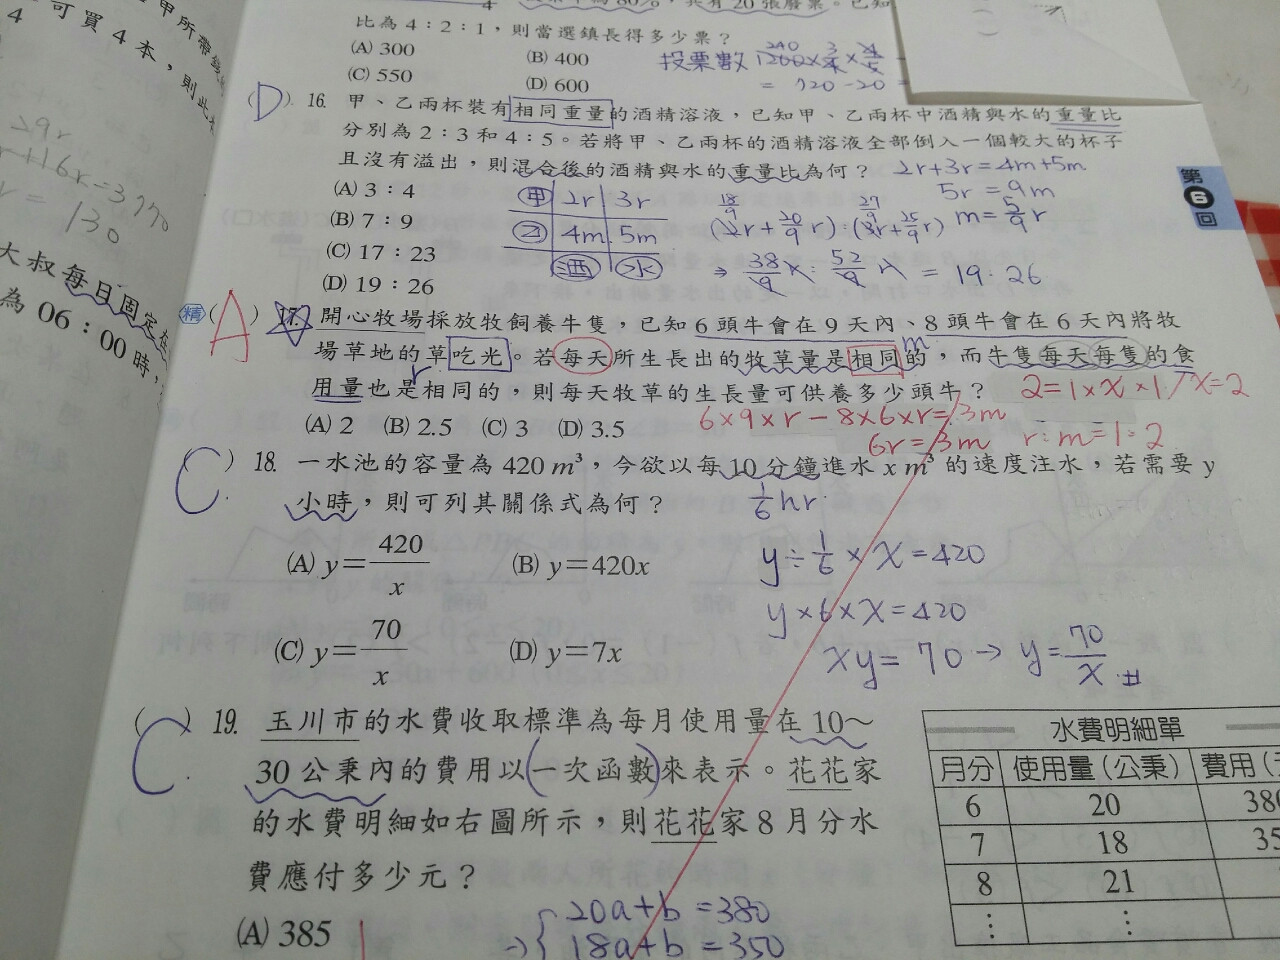 甲所帶錢
可買4本，則此
4
29r
+16r=3770
r = 130
大叔每日固定在
為06：00時，
比為4：2：1，則當選鎮長得多少票？
(A) 300
(B) 400
(C) 550
(D) 600
投票數 1200×
= 720-20
(D) 16. 甲、乙兩杯裝有相同重量的酒精溶液，已知甲、乙兩杯中酒精與水的重量比
分別為2：3和4：5。若將甲、乙兩杯的酒精溶液全部倒入一個較大的杯子
且沒有溢出，則混合後的酒精與水的重量比為何？
2r+3r=4m+5m
5r=9m
m=5/9 r
(A) 3：4
(B) 7：9
(C) 17：23
(D) 19：26
甲 2r 3r
乙 4m 5m
酒 水
18/9 27/9
(2r+20/9 r):(3r+25/9 r)
⇒ 38/9 r : 52/9 r = 19:26
第6回
精 (A) 17. 開心牧場採放牧飼養牛隻，已知6頭牛會在9天內、8頭牛會在6天內將牧
m
場草地的草吃光。若每天所生長出的牧草量是相同的，而牛隻每天每隻的食
r
用量也是相同的，則每天牧草的生長量可供養多少頭牛？
2=1×x×1/x=2
(A) 2 (B) 2.5 (C) 3 (D) 3.5
6×9×r-8×6×r=3m
6r=3m r:m=1:2
(C) 18. 一水池的容量為420 m³，今欲以每10分鐘進水 x m³ 的速度注水，若需要 y
小時，則可列其關係式為何？
1/6 hr
(A) y=420/x
(B) y=420x
(C) y=70/x
(D) y=7x
y÷1/6×x=420
y×6×x=420
xy=70→y=70/x #
(C) 19. 玉川市的水費收取標準為每月使用量在10～
30公秉內的費用以(一次函數)來表示。花花家
的水費明細如右圖所示，則花花家8月分水
費應付多少元？
(A) 385
→{20a+b=380
18a+b=350
水費明細單
月分 使用量（公秉） 費用
6 20 380
7 18 35
8 21
⋮ ⋮